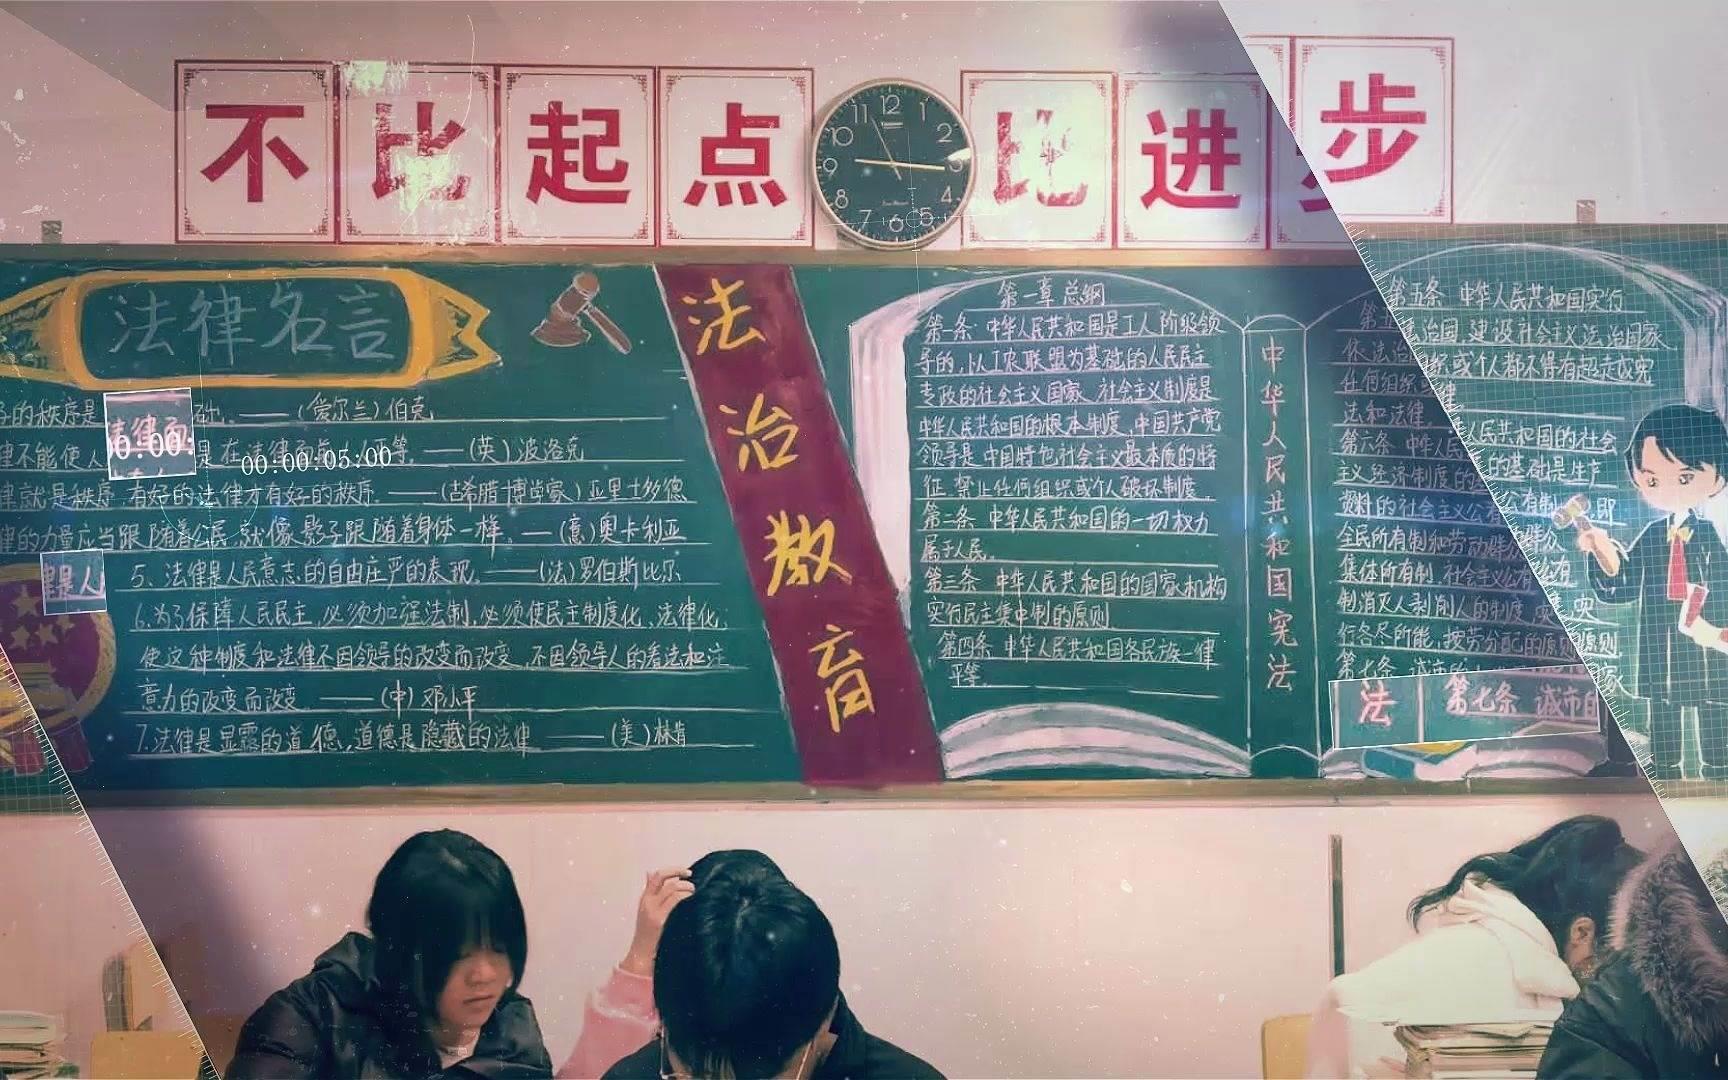 不比起点 比进步
12
11
10
9
8
7
6
5
2
法律名言
的秩序是 础. —— (爱尔兰) 伯克
法律面
00:00:
00:00:05:00
律不能使人 是在法律面前人人平等. —— (英) 波洛克
律就是秩序, 有好的法律才有好的秩序. —— (古希腊博学家) 亚里士多德
律的力量应当跟随着公民, 就像影子跟随着身体一样. —— (意) 奥卡利亚
律是人
5、法律是人民意志的自由庄严的表现. —— (法) 罗伯斯比尔
6.为了保障人民民主,必须加强法制,必须使民主制度化、法律化,
使这种制度和法律不因领导的改变而改变,不因领导人的看法和注
意力的改变而改变. —— (中) 邓小平
7.法律是显露的道德,道德是隐藏的法律 —— (美) 林肯
法治教育
第一章 总纲
第一条 中华人民共和国是工人阶级领
导的,以工农联盟为基础的人民民主
专政的社会主义国家. 社会主义制度是
中华人民共和国的根本制度,中国共产党
领导是中国特色社会主义最本质的特
征.禁止任何组织或个人破坏制度.
第二条 中华人民共和国的一切权力
属于人民.
第三条 中华人民共和国的国家机构
实行民主集中制的原则
第四条 中华人民共和国各民族一律
平等.
中华人民共和国宪法
第五条 中华人民共和国实行
依法治国,建设社会主义法治国家
任何组织或个人都不得有超越或宪
法和法律
第六条 中华人民共和国的社会
主义经济制度的基础是生产
资料的社会主义公有制,即
全民所有制和劳动群众
集体所有制.社会主义公有
制消灭人剥削人的制度,实
行各尽所能,按劳分配的原则
第七条 城市的
法 第七条 城市的